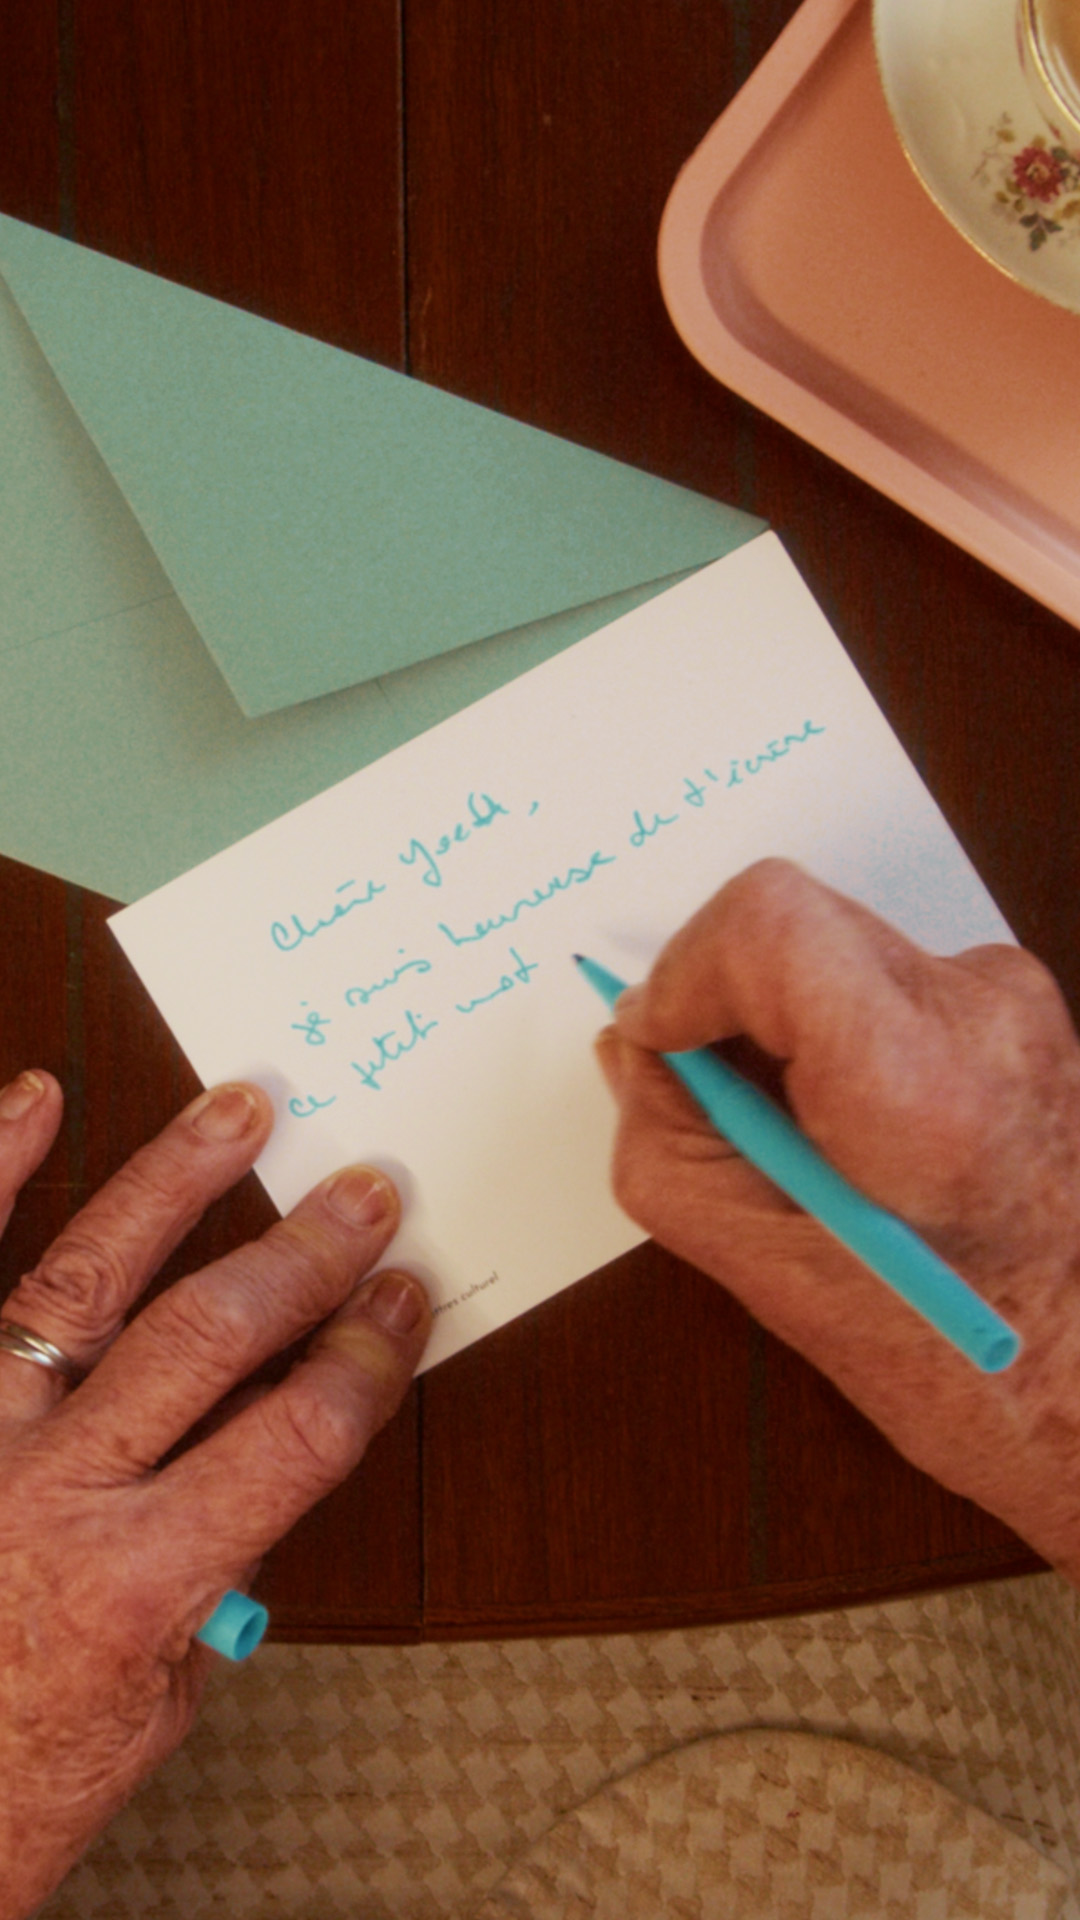 Chère
je suis heureuse de t'écrire
ce petit mot
culturel